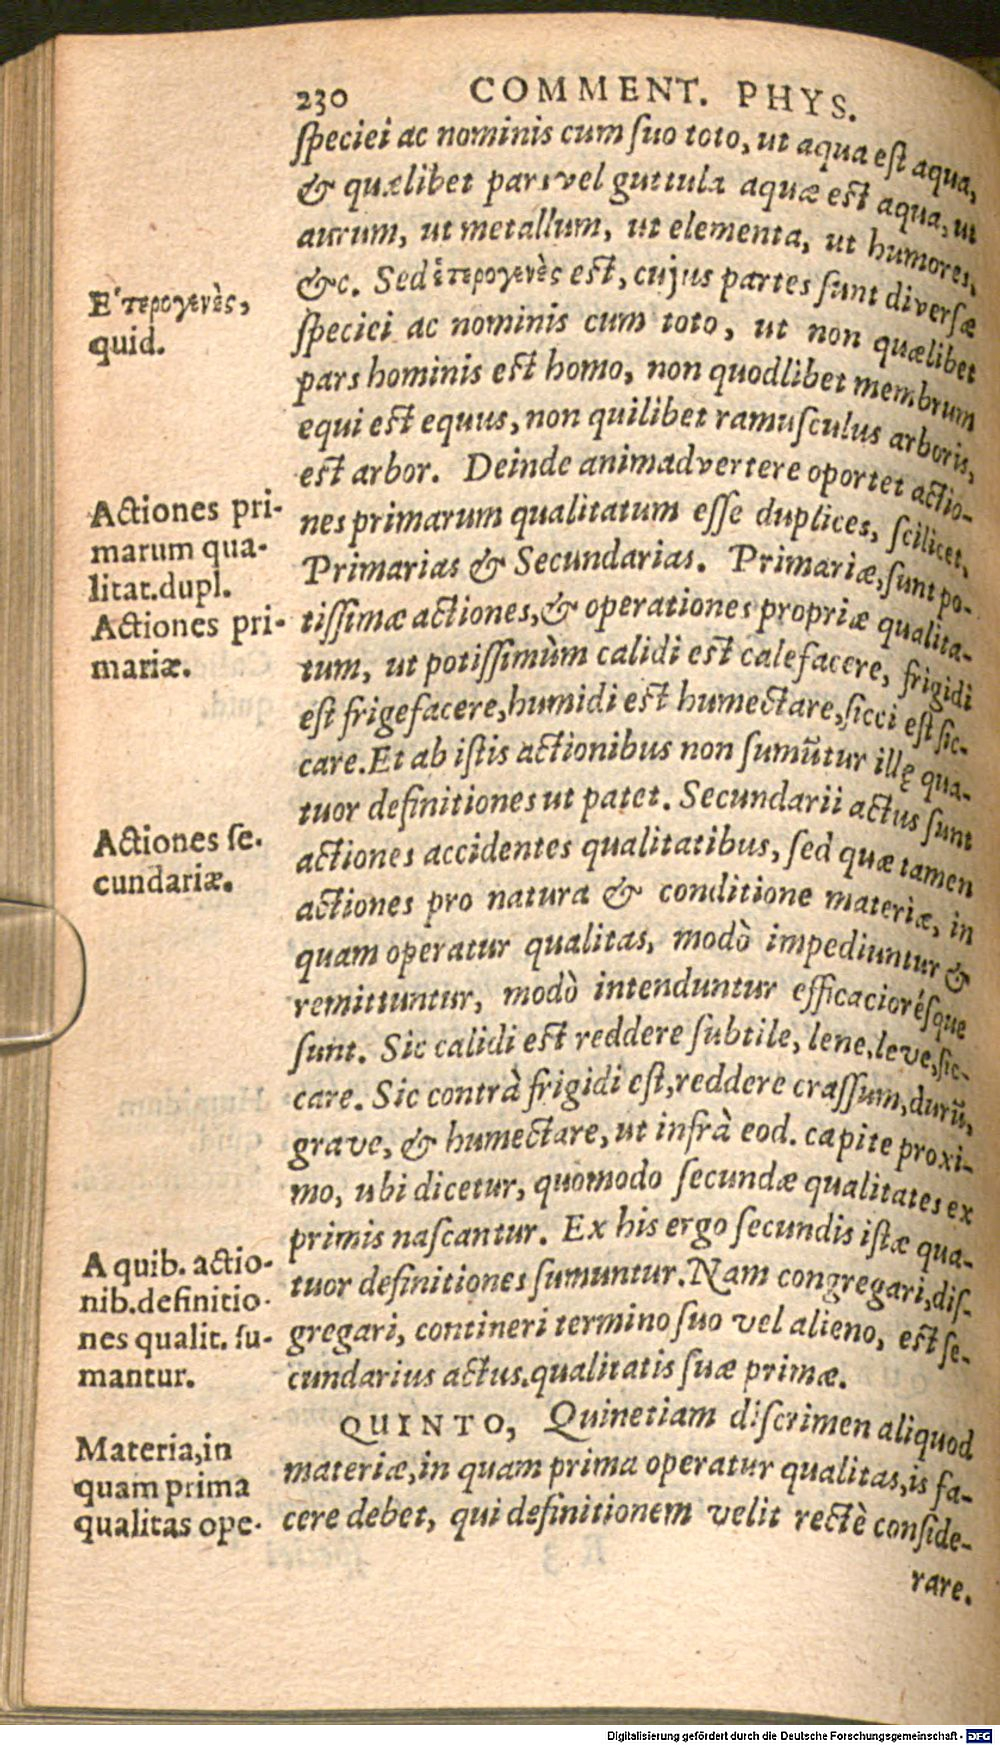 230 COMMENT. PHYS.
speciei ac nominis cum suo toto, ut aqua est aqua,
& quælibet pars vel guttula aquæ est aqua, ut
aurum, ut metallum, ut elementa, ut humores,
&c. Sed ἑτερογενὲς est, cujus partes sunt diversæ
speciei ac nominis cum toto, ut non quælibet
pars hominis est homo, non quodlibet membrum
equi est equus, non quilibet ramusculus arboris,
est arbor. Deinde animadvertere oportet actio-
nes primarum qualitatum esse duplices, scilicet,
Primarias & Secundarias. Primariæ, sunt po-
tissimæ actiones, & operationes propriæ qualita-
tum, ut potissimùm calidi est calefacere, frigidi
est frigefacere, humidi est humectare, sicci est sic-
care. Et ab istis actionibus non sumũtur illę qua-
tuor definitiones ut patet. Secundarii actus sunt
actiones accidentes qualitatibus, sed quæ tamen
actiones pro natura & conditione materiæ, in
quam operatur qualitas, modò impediuntur &
remittuntur, modò intenduntur efficaciorésque
sunt. Sic calidi est reddere subtile, lene, leve, sic-
care. Sic contrà frigidi est, reddere crassum, durũ,
grave, & humectare, ut infrà eod. capite proxi-
mo, ubi dicetur, quomodo secundæ qualitates ex
primis nascantur. Ex his ergo secundis istæ qua-
tuor definitiones sumuntur. Nam congregari, dis-
gregari, contineri termino suo vel alieno, est se-
cundarius actus qualitatis suæ primæ.
QUINTO, Quinetiam discrimen aliquod
materiæ, in quam prima operatur qualitas, is fa-
cere debet, qui definitionem velit rectè conside-
rare.
Ἑτερογενὲς,
quid.
Actiones pri-
marum qua-
litat. dupl.
Actiones pri-
mariæ.
Actiones se-
cundariæ.
A quib. actio-
nib. definitio-
nes qualit. su-
mantur.
Materia, in
quam prima
qualitas ope-
Digitalisierung gefördert durch die Deutsche Forschungsgemeinschaft - DFG